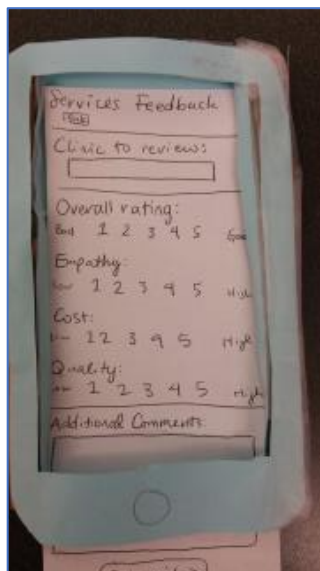 Services Feedback
Clinic to review:
Overall rating:
Bad 1 2 3 4 5 Good
Empathy:
Low 1 2 3 4 5 High
Cost:
Low 1 2 3 4 5 High
Quality:
Low 1 2 3 4 5 High
Additional Comments: